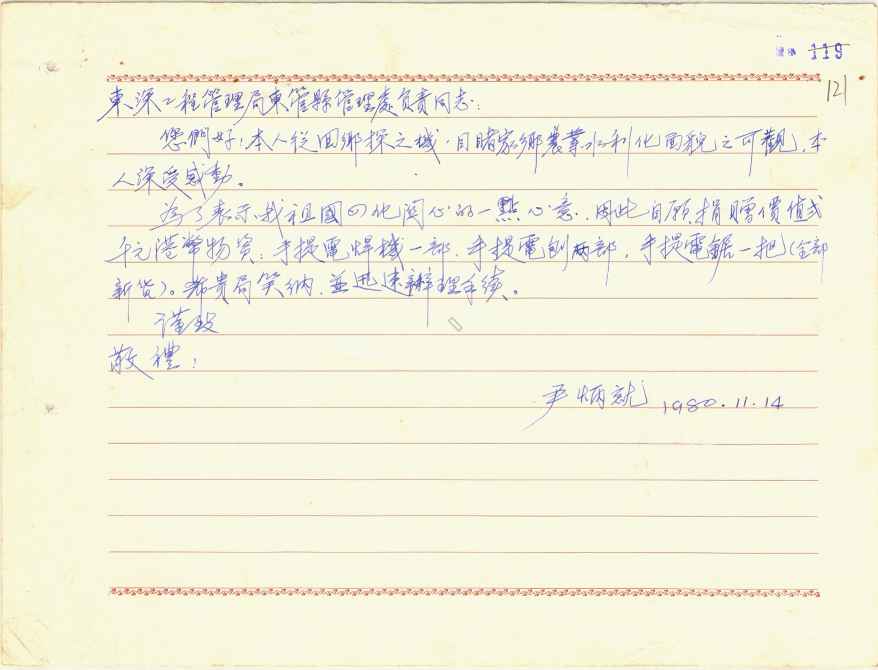 119
121
東深工程管理局東管縣管理處負責同志:
您們好!本人從回鄉探之機,目睹家鄉農業水利化面貌之可觀,本
人深受感動。
為了表示我祖國四化関心的一點心意,因此自願捐贈價值弍
千元港幣物资:手提電焊機一部,手提電刨两部,手提電鋸一把(全部
新货)。希貴局笑纳,並迅速辦理手续。
谨致
敬禮!
尹炳就 1980.11.14